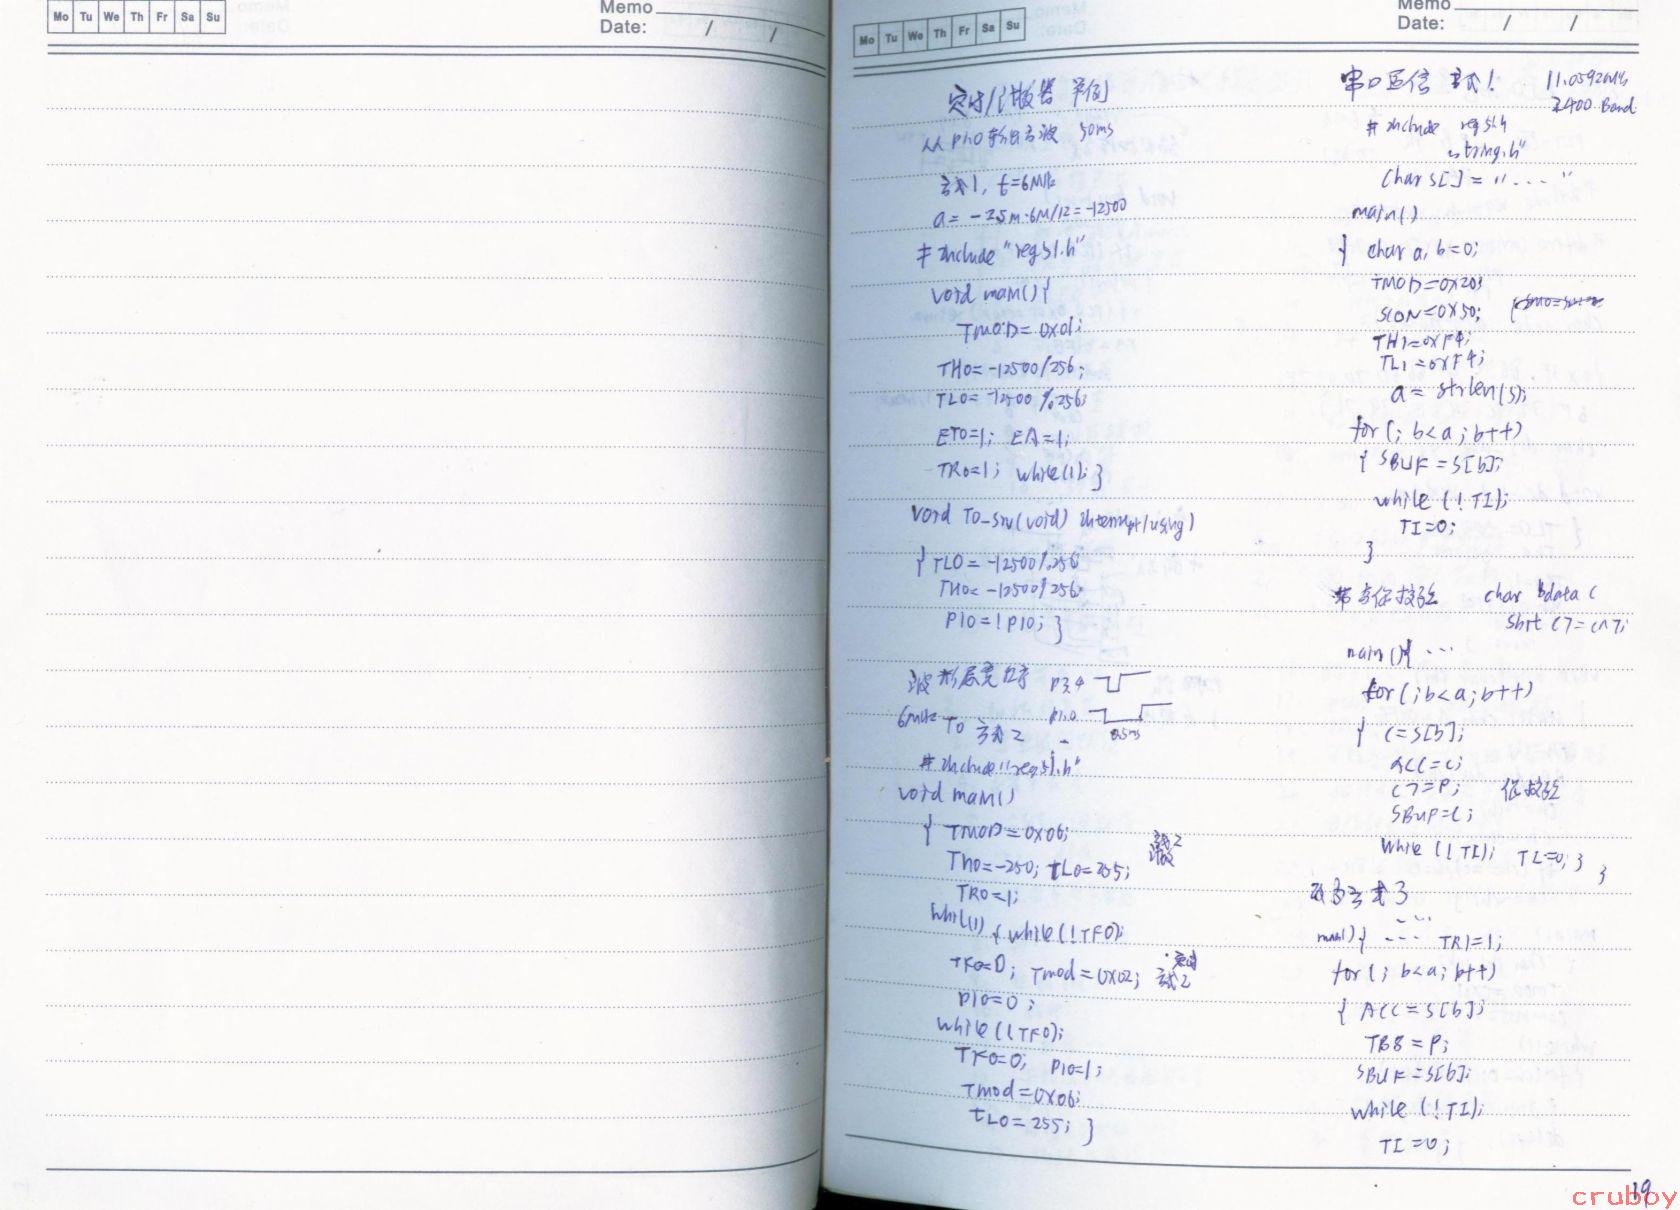 Mo Tu We Th Fr Sa Su
Memo
Date: / /
Mo Tu We Th Fr Sa Su
Memo
Date: / /
定时/计数器 举例
从P1.0输出方波 50ms
方式1, f=6MHz
a = -25m·6M/12 = -12500
#include "reg51.h"
void main() {
TMOD = 0x01;
TH0 = -12500/256;
TL0 = -12500%256;
ET0=1; EA=1;
TR0=1; while(1); }
void T0_srv(void) interrupt 1 using 1
{ TL0 = -12500%256
TH0 = -12500/256;
P10 = !P10; }
波形展宽程序 P3.4
6MHz T0 方式2 P1.0 0.5ms
#include "reg51.h"
void main()
{ TMOD = 0x06; 方式2
TH0 = -250; TL0 = 255; 计数
TR0=1;
while(1) { while(!TF0);
TF0=0; Tmod = 0x02; 定时 方式2
P10=0;
while(!TF0);
TF0=0; P10=1;
Tmod = 0x06;
TL0 = 255; }
串口通信 方式1 11.0592MHz
2400 Baud
#include reg51.h
string.h"
char s[] = "...."
main()
{ char a, b=0;
TMOD = 0x20;
SCON = 0x50;
TH1=0xF4;
TL1=0xF4;
a = strlen(s);
for(; b<a; b++)
{ SBUF = S[b];
while (!TI);
TI=0;
}
带奇偶校验 char bdata c
sbit c7=c^7;
main(){ ...
for(; b<a; b++)
{ c=s[b];
acc=c;
c7=P; 偶校验
SBUF=c;
while (!TI); TI=0; } }
方式3
main(){ ... TR1=1;
for(; b<a; b++)
{ ACC = S[b];
TB8 = P;
SBUF = S[b];
while (!TI);
TI=0;
19
cruboy